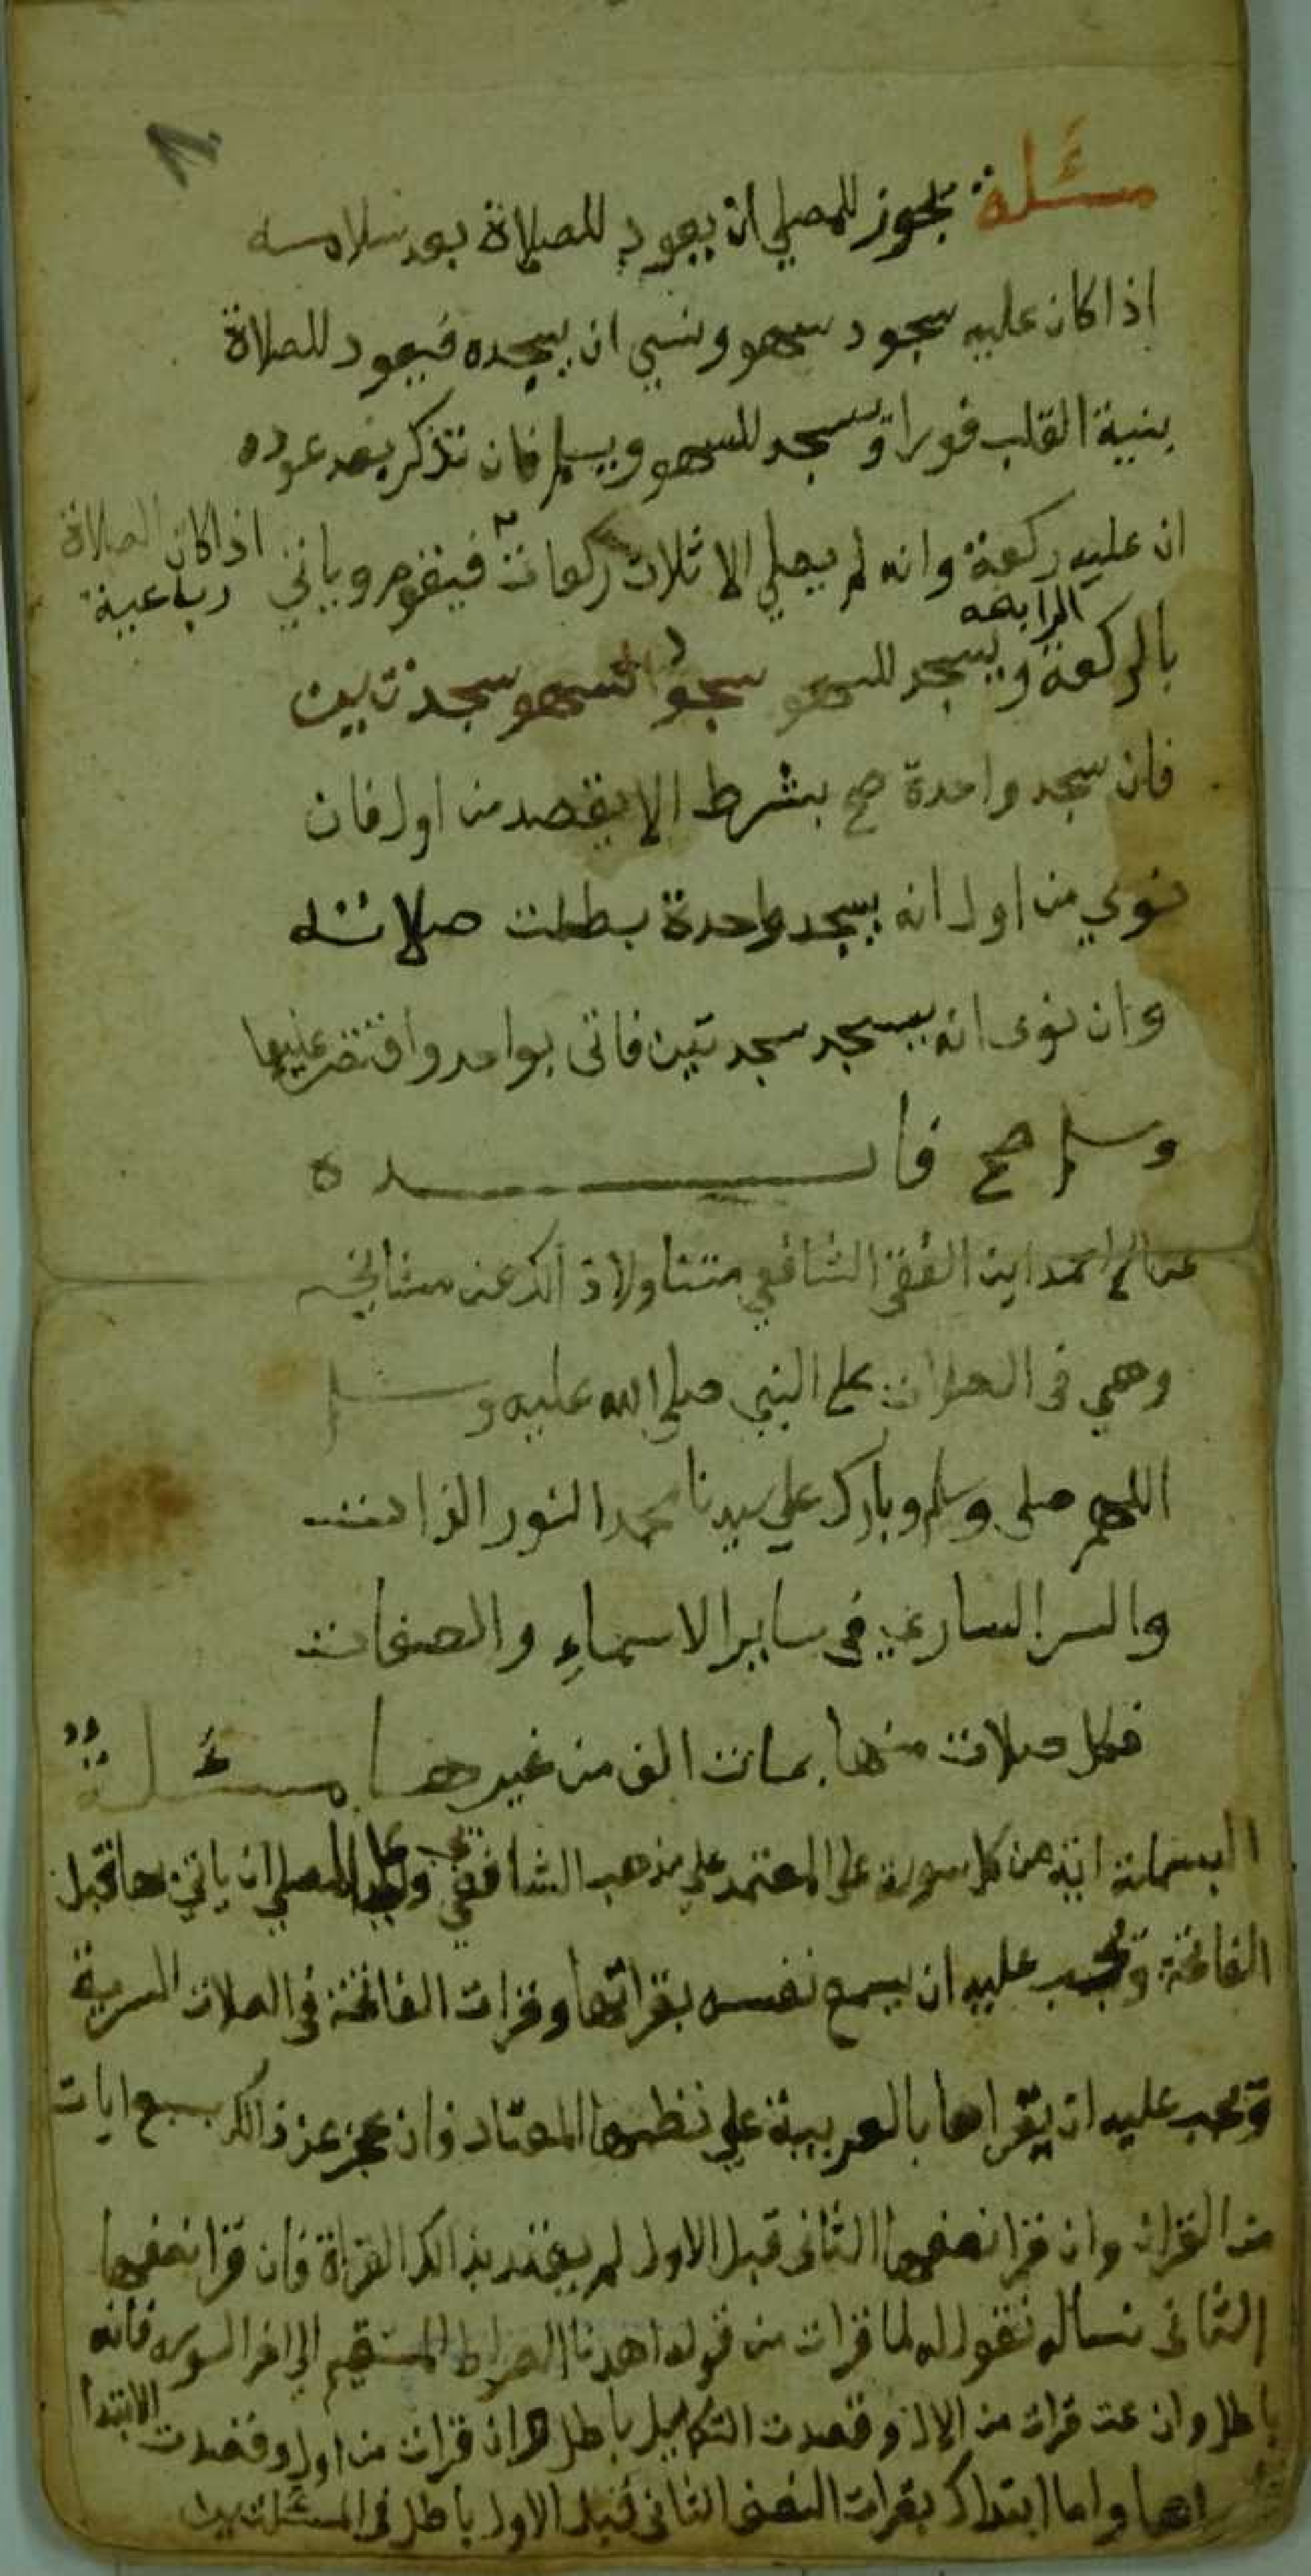 ٨٠
مسئلة يجوز للمصلي ان يعود للصلاة بعد سلامه
اذا كان عليه سجود سهو ونسي ان يسجده فيعود للصلاة
بنية القلب فورا ويسجد للسهو ويسلم فان تذكر بعد عوده
ان عليه ركعة وانه لم يصلي الا ثلاث ركعات فيقوم وياتي اذا كان الصلاة رباعية
بالركعة الرابعه ويسجد للسهو سجود السهو سجدتين
فان سجد واحدة صح بشرط الا يقصد من اول فان
نوي من اول انه يسجد واحدة بطلت صلاته
وان نوى انه يسجد سجدتين فاتى بواحد واقتصر عليها
وسلم صح فايده
احمد ابن الشافعي ذالك عن مشايخه
وهي في على النبي صلى الله عليه وسلم
اللهم صلى وسلم وبارك على سيدنا محمد النور الذات
والسر الساري في ساير الاسماء والصفات
فكل صلات منها بمات الف من غيرها مسئلة
البسملة اية من كل سورة على المعتمد على مذهب الشافعي المصلي ان ياتي بها قبل
الفاتحة ويجب عليه ان يسمع نفسه بقراتها وقرات الفاتحة في الصلات السرية
ويجب عليه ان يقراها بالعربية على نظمها المعتاد فان عجز عن ذالك سبع ايات
من القران وان قرا نصفها الثاني قبل الاول لم يعتد بذالك القراة فان قرا نصفها
الثاني نساله نقول له لما قرات من قوله اهدنا الصراط المستقيم الى اخر السوره فانه
باطل وان قرات من وقصدت التكميل باطل وان قرات من اول وقصدت الابتدا
واما ابتداك بقرات النصف الثاني قبل الاول باطل في المسئلتين